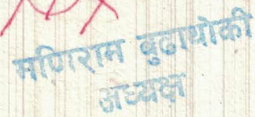 मणिराम बुढाथोकी
अध्यक्ष